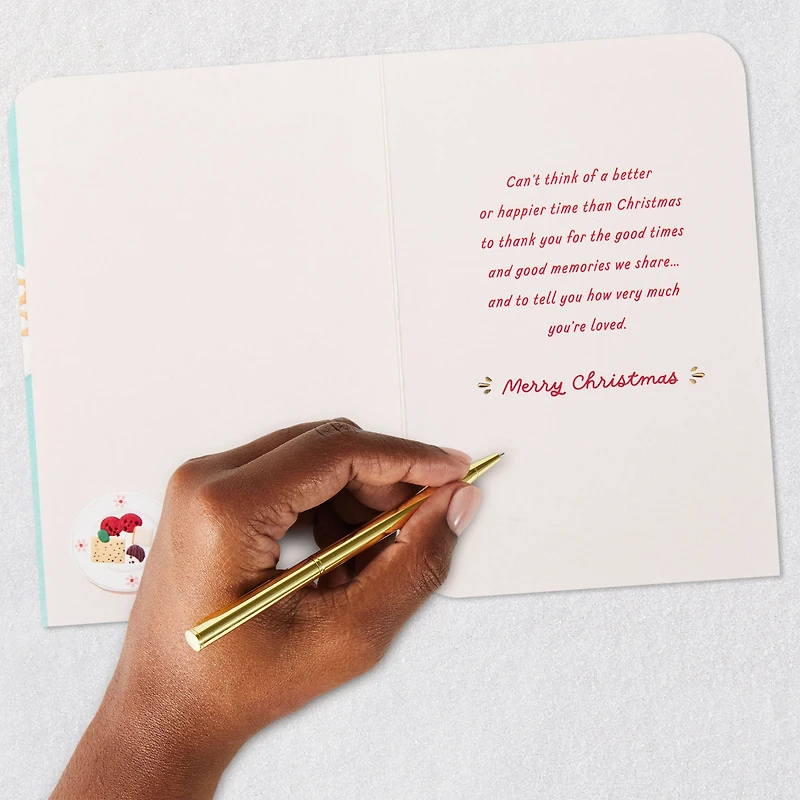 Can't think of a better
or happier time than Christmas
to thank you for the good times
and good memories we share...
and to tell you how very much
you're loved.
Merry Christmas